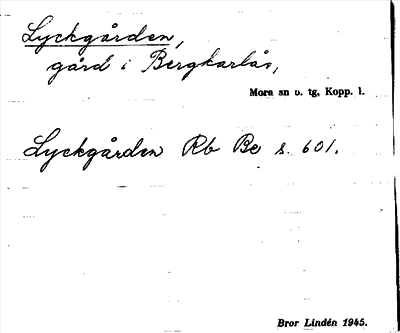 Lyckgården,
gård i Bergkarlås,
Mora sn o. tg, Kopp. l.
Lyckgården Rb Be s. 601.
Bror Lindén 1945.